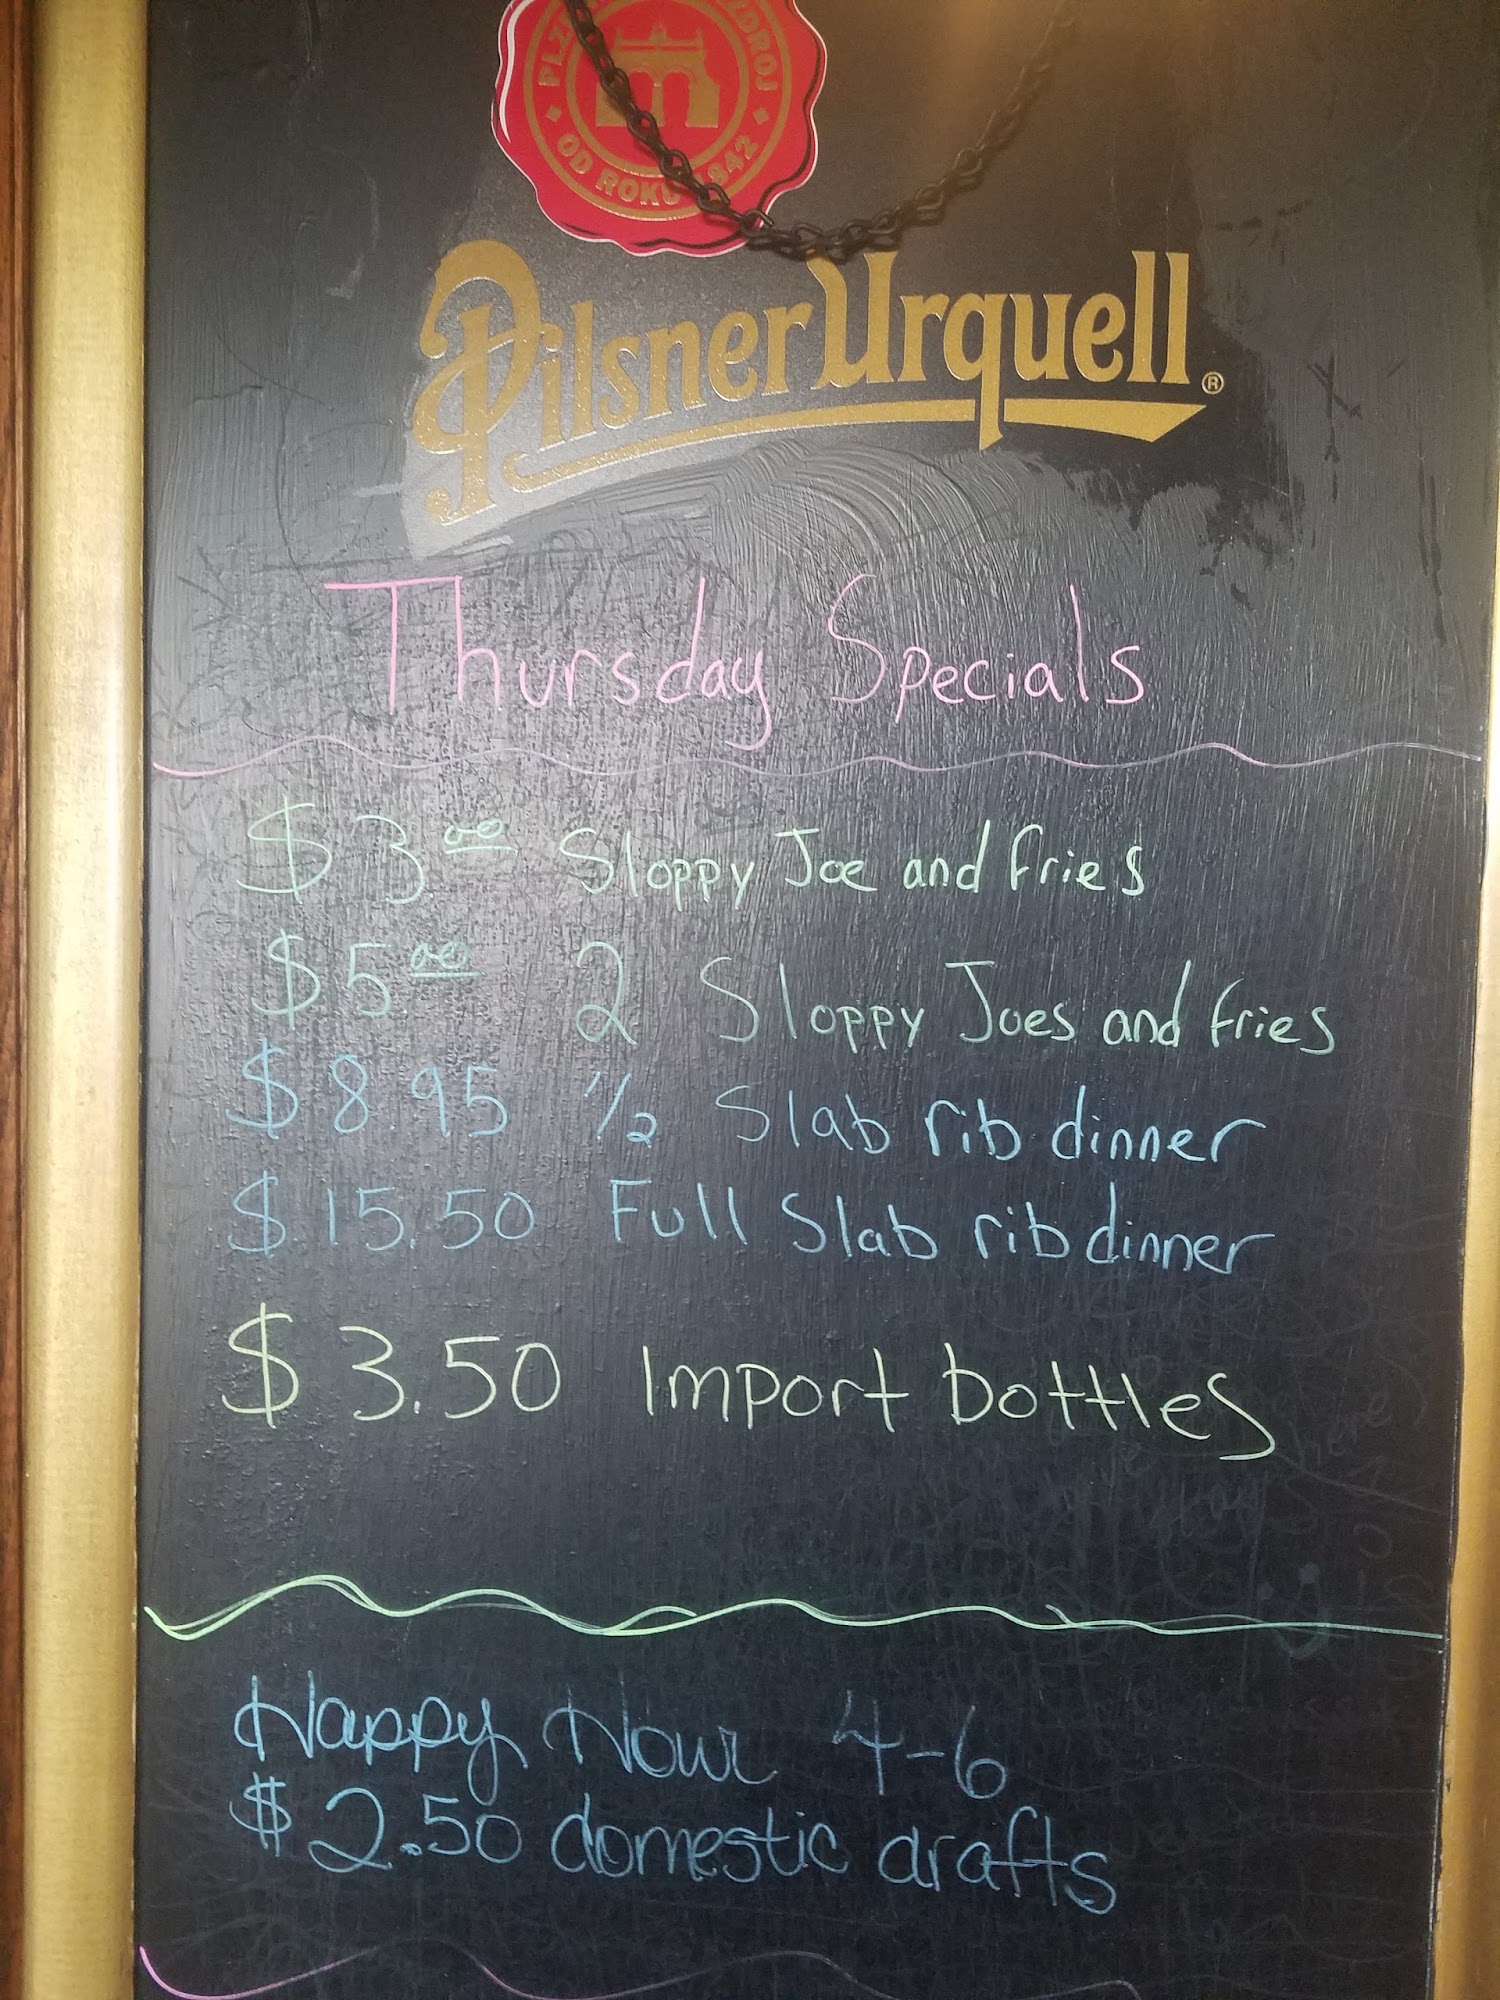 OD ROKU 1842
Pilsner Urquell®
Thursday Specials
$3.00 Sloppy Joe and fries
$5.00 2 Sloppy Joes and fries
$8.95 1/2 Slab rib dinner
$15.50 Full Slab rib dinner
$3.50 Import bottles
Happy Hour 4-6
$2.50 domestic drafts